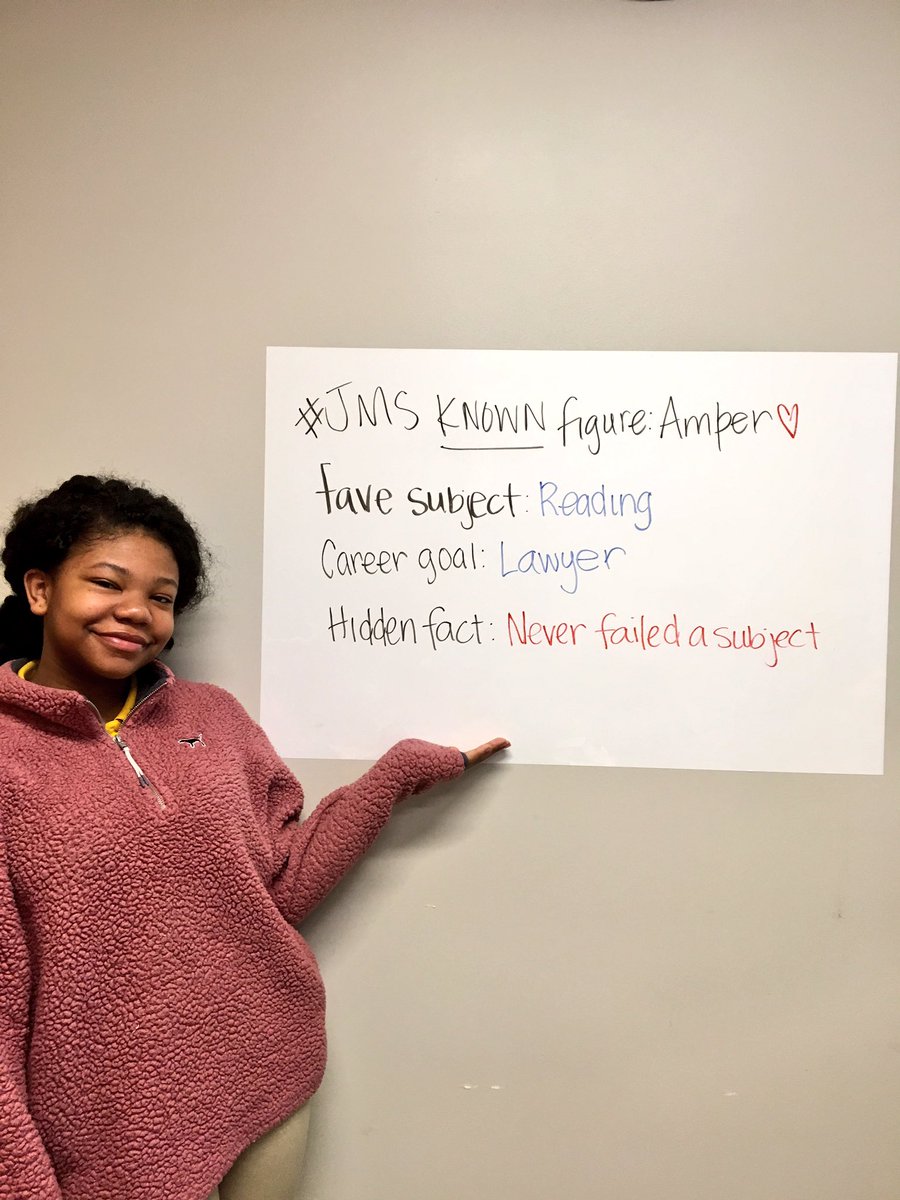 #JMS KNOWN figure: Amper♡
fave subject: Reading
Career goal: Lawyer
Hidden fact: Never failed a subject